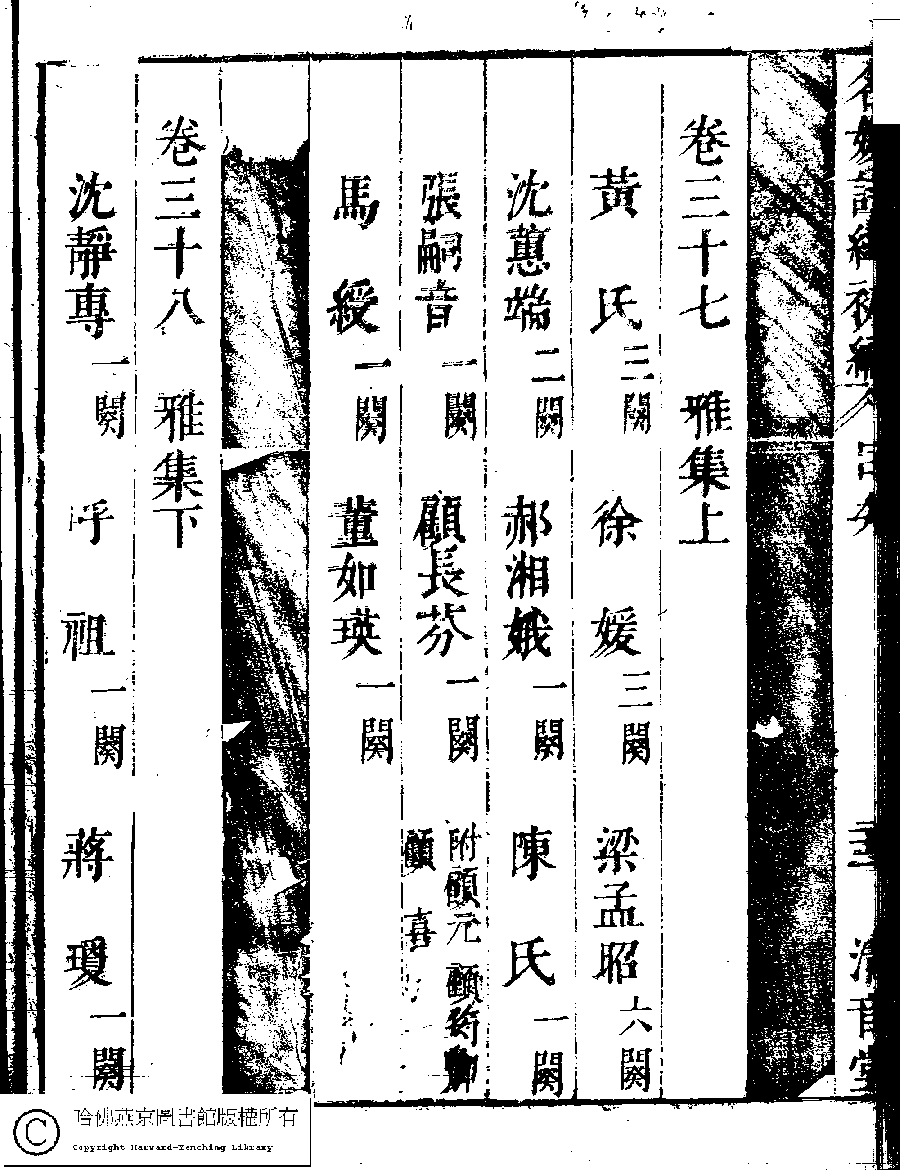 卷三十七　雅集上
黃　氏三闋　徐　媛三闋　梁孟昭六闋
沈蕙端二闋　郝湘娥一闋　陳　氏一闋
張嗣音一闋　顧長芬一闋　附顧元　顧
顧　喜
馬　綬一闋　董如瑛一闋
卷三十八　雅集下
沈靜專一闋　呼　祖一闋　蔣　瓊一闋
哈佛燕京圖書館版權所有
Copyright Harvard-Yenching Library